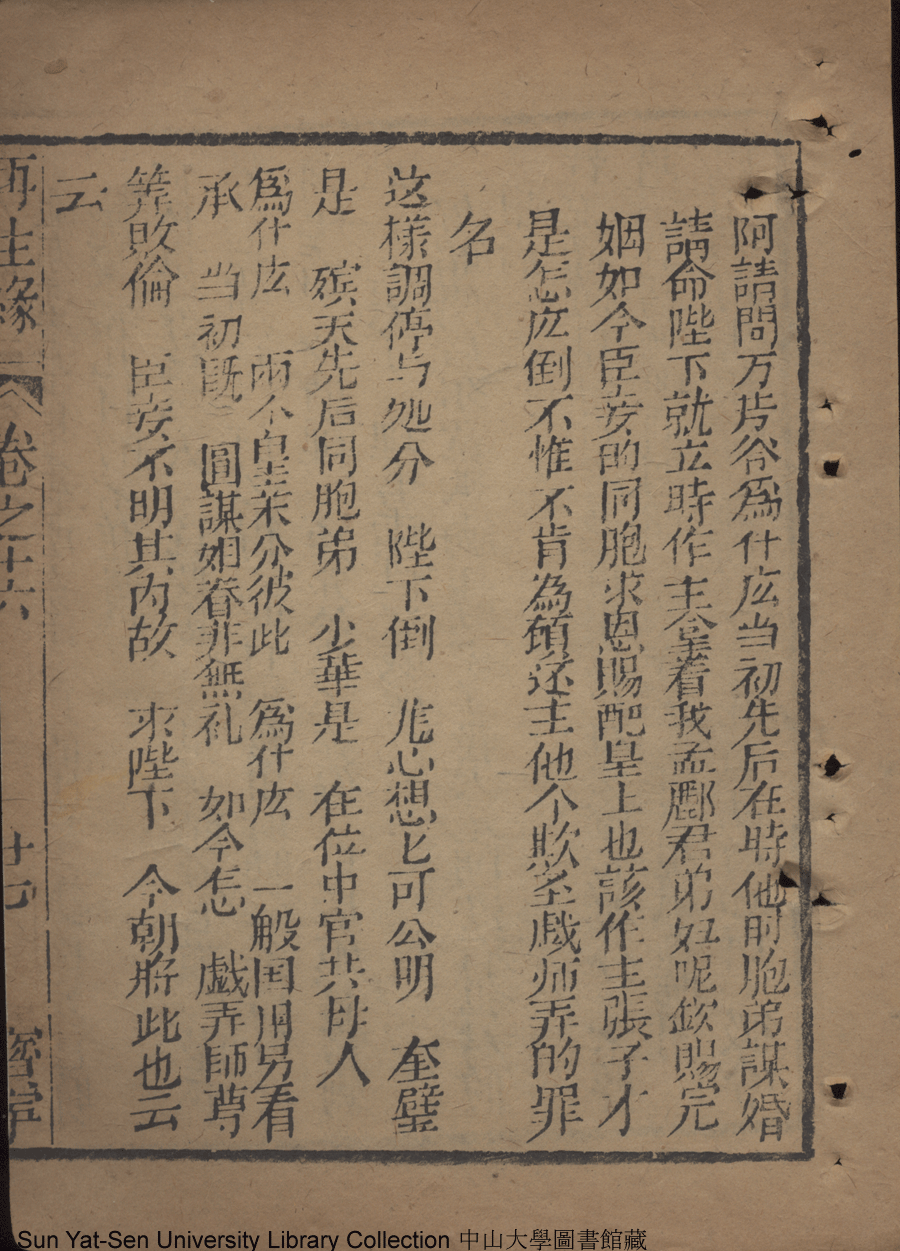 阿請問万歩谷為什庅当初先后在時他的胞弟謀婚
請命陛下就立時作主全呈着我孟酈君弟奴呢欽賜完
姻如今臣妾的同胞求恩賜配皇上也該作主張子才
是怎庅倒不惟不肯為碩还主他个欺圣戯师弄的罪
名
这様調停与処分 陛下倒 非心想匕可公明 奎璧
是 殡天先后同胞弟 少華是 在位中宫共母人
為什庅 兩个皇 分彼此 為什庅 一般国用另看
承 当初既 圓謀姻眷非無礼 如今怎 戯弄師尊
筭敗倫 臣妾不明其内故 求陛下 今朝將此也云
云
再生緣 卷之十六